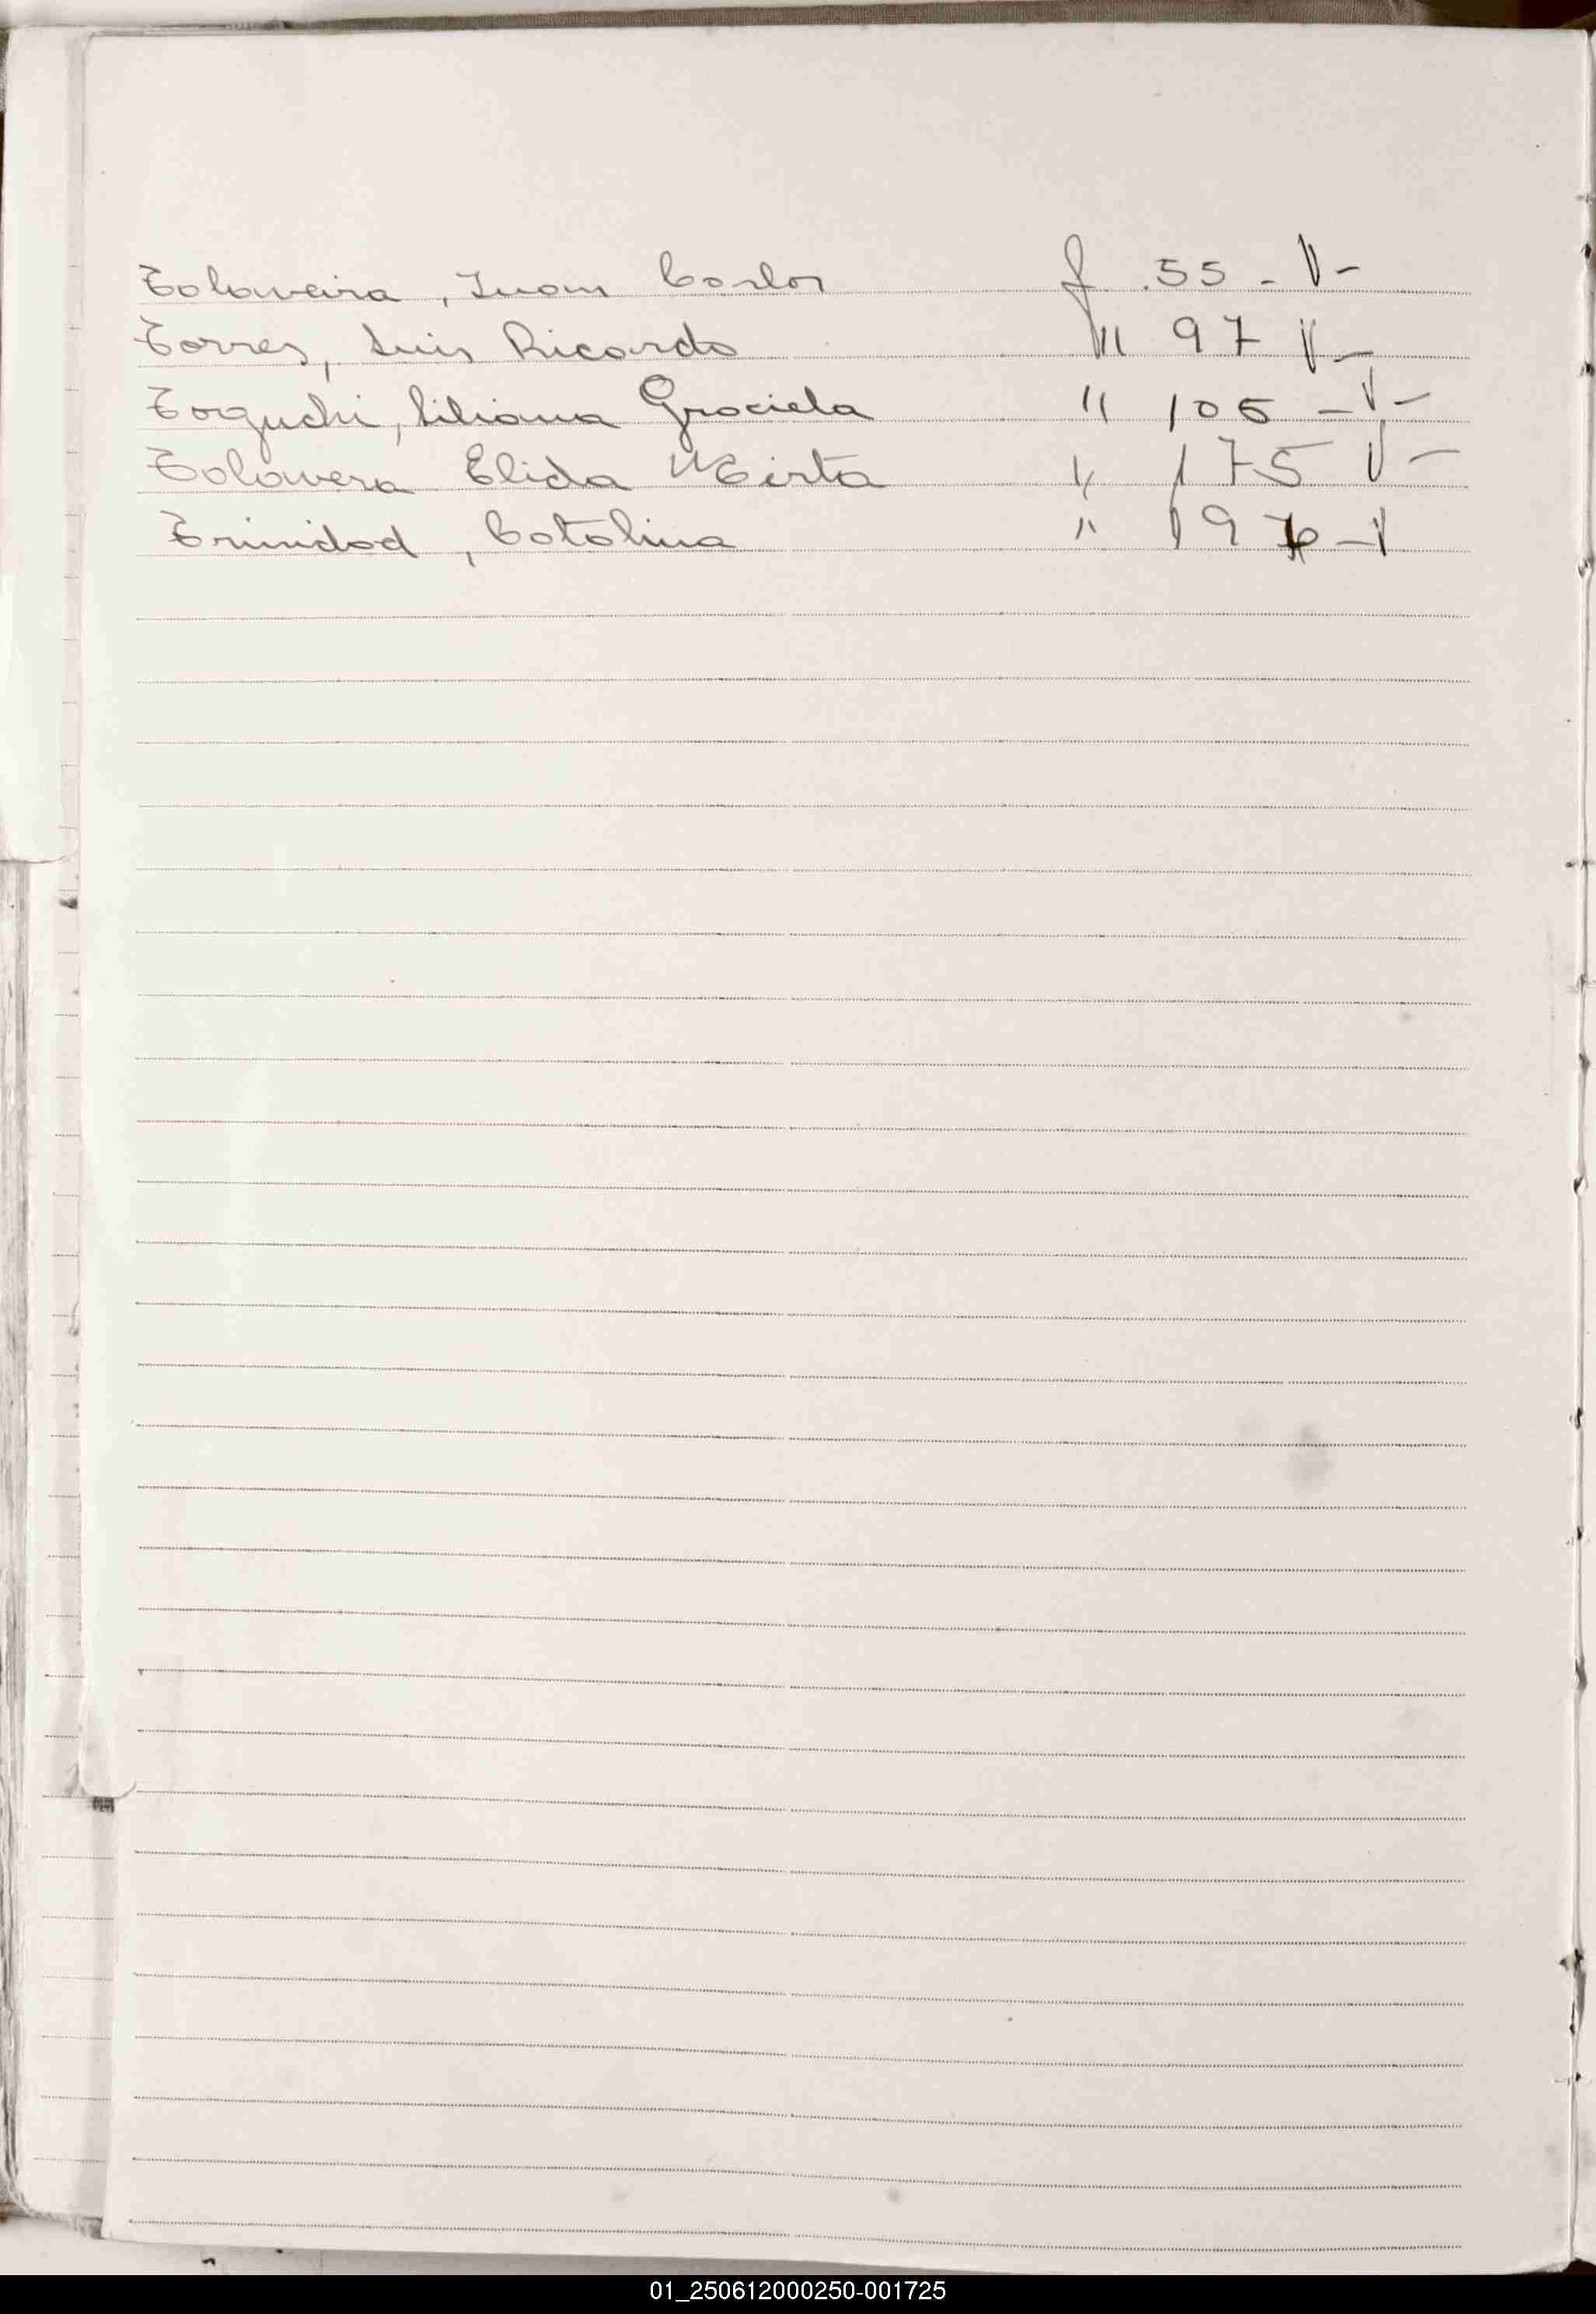 Talaveira, Juan Carlos f 55 - V-
Torres, Luis Ricardo " 97 V-
Toguchi, Liliana Graciela " 105 - V-
Talavera Elida Mirta " 175 V-
Trinidad, Catalina " 196 - V
01_250612000250-001725